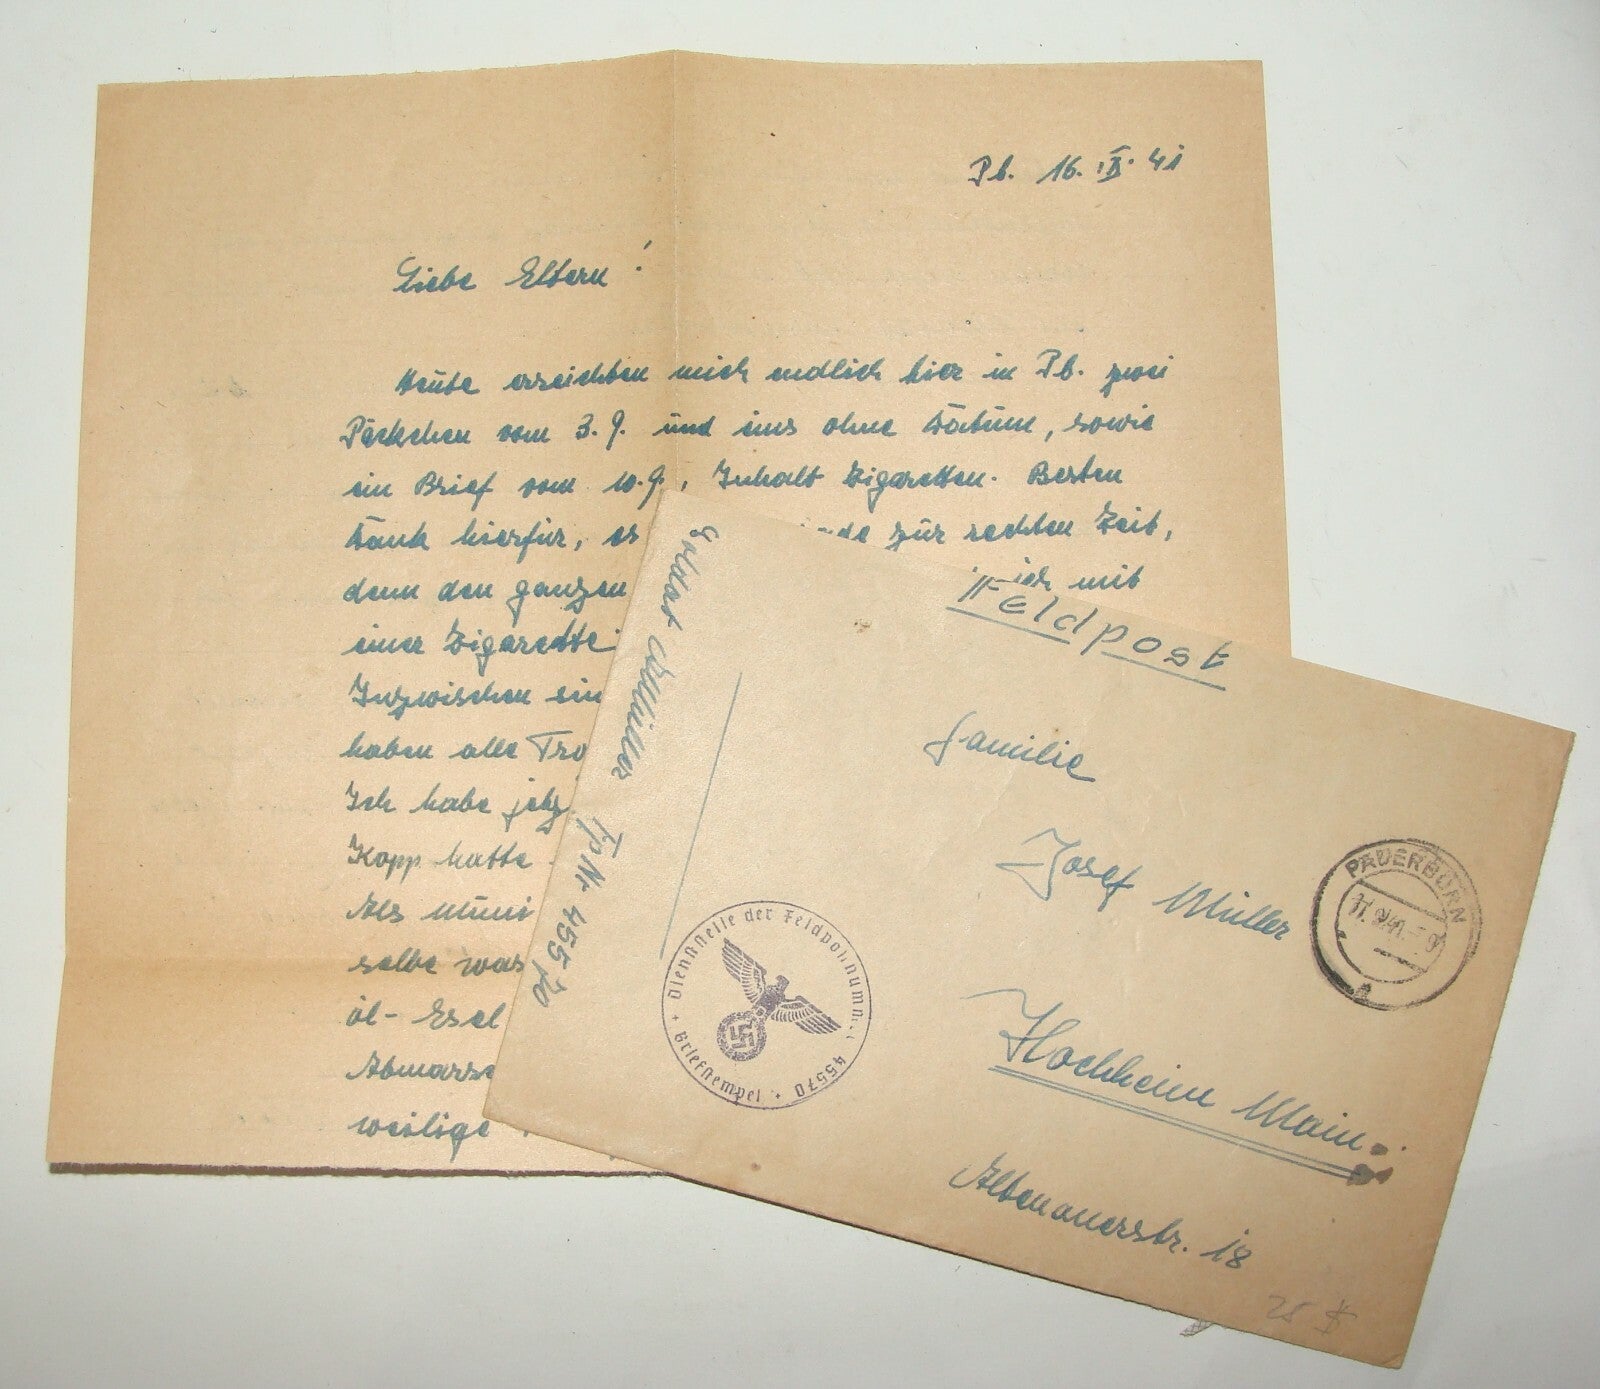 Pb. 16. IX. 41
Liebe Eltern!
Heute erreichten mich endlich hier in Pb. zwei
Päckchen vom 3.9. und eins ohne Datum, sowie
ein Brief vom 10.9., Inhalt Zigaretten. Besten
Dank hierfür, es zur rechten Zeit,
denn den ganzen ich mit
einer Zigarette
Inzwischen
haben alle
Ich habe
Kopp hatte
Als
selbe was
öl-Esel
weilige
Feldpost
Familie
Josef Müller
Hochheim Main.
Altenauerstr. 18
Soldat Müller FpNr 45570
Dienststelle der Feldpostnumm. 45570
Briefstempel
PADERBORN
25 $